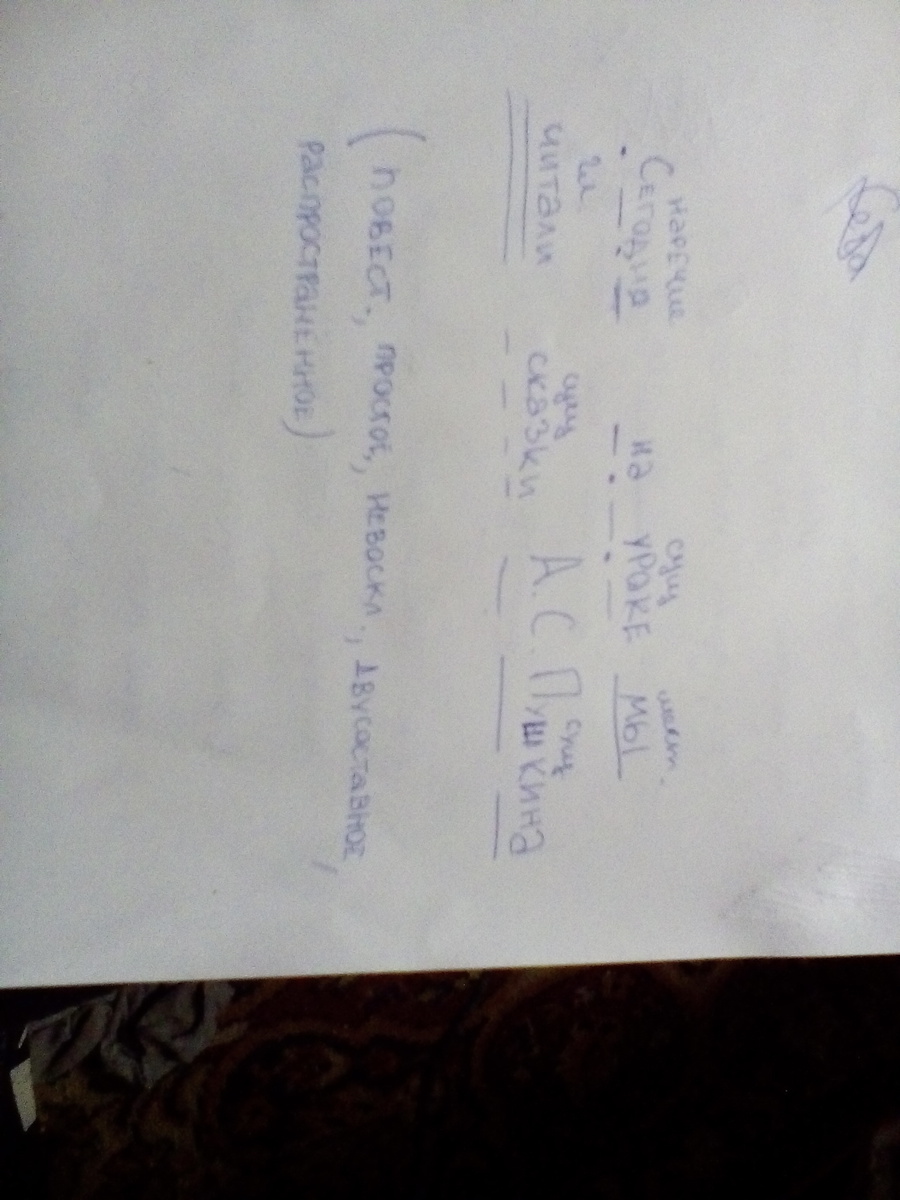 наречие сущ мест.
Сегодня на уроке мы
гл. сущ сущ
читали сказки А.С. Пушкина
(повест., простое, невоскл., двусоставное,
распространённое)